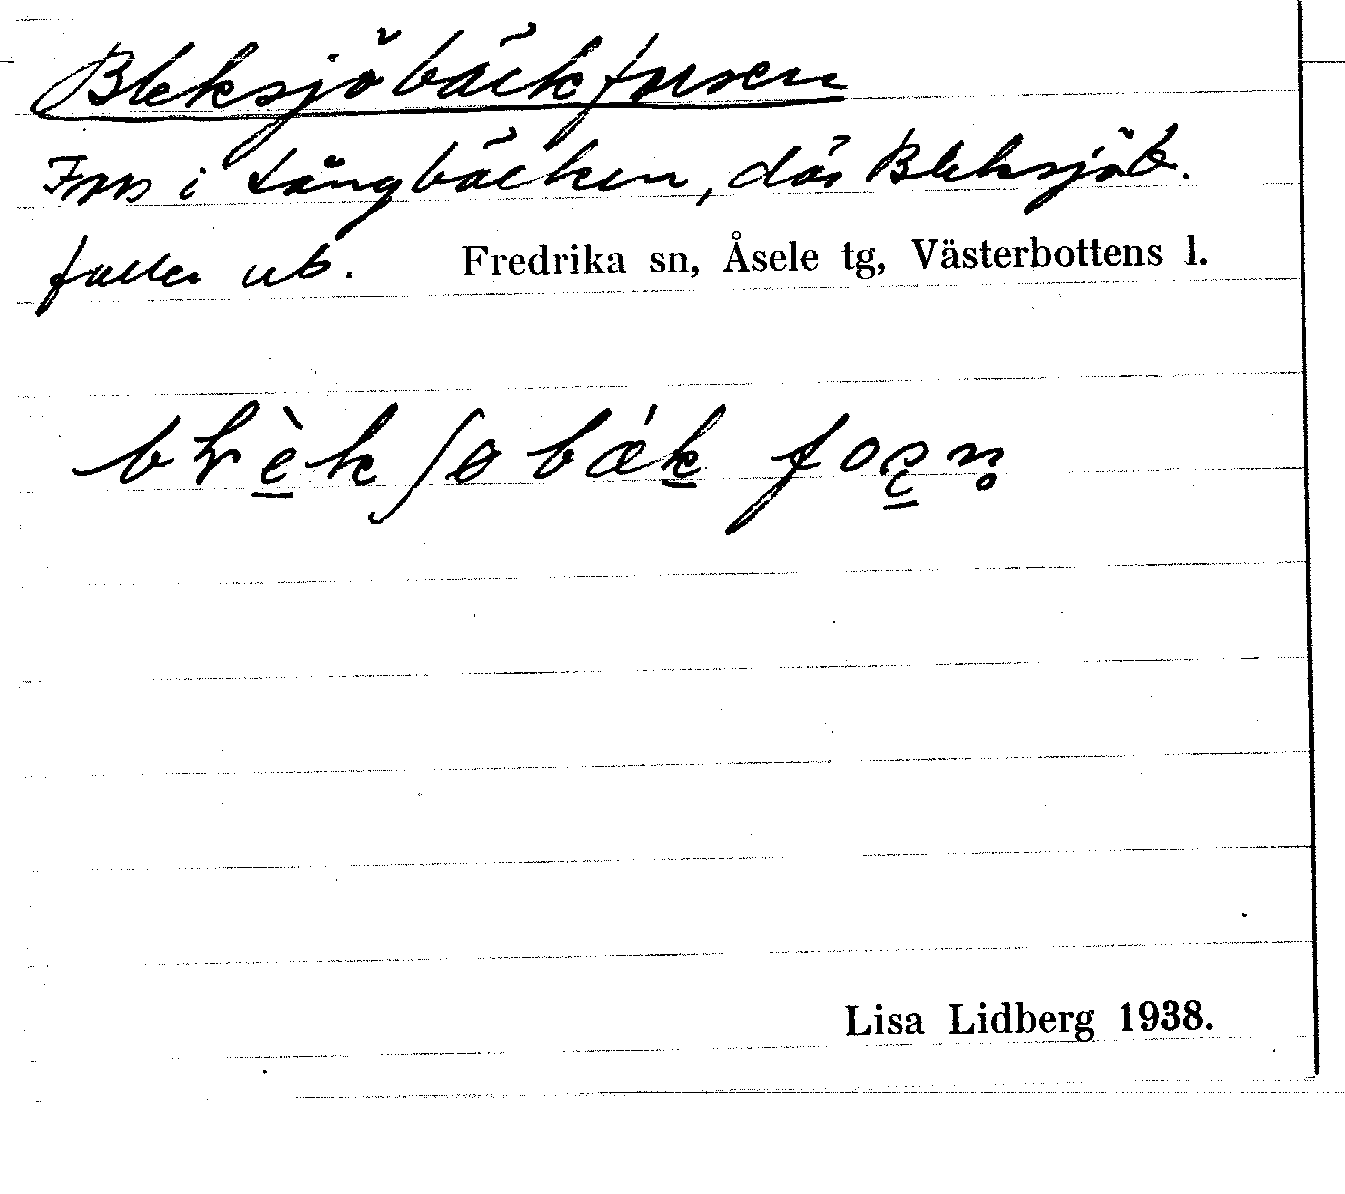 Bleksjöbäckforsen
Fors i Långbäcken, där Bleksjöb.
faller ut. Fredrika sn, Åsele tg, Västerbottens l.
Lisa Lidberg 1938.